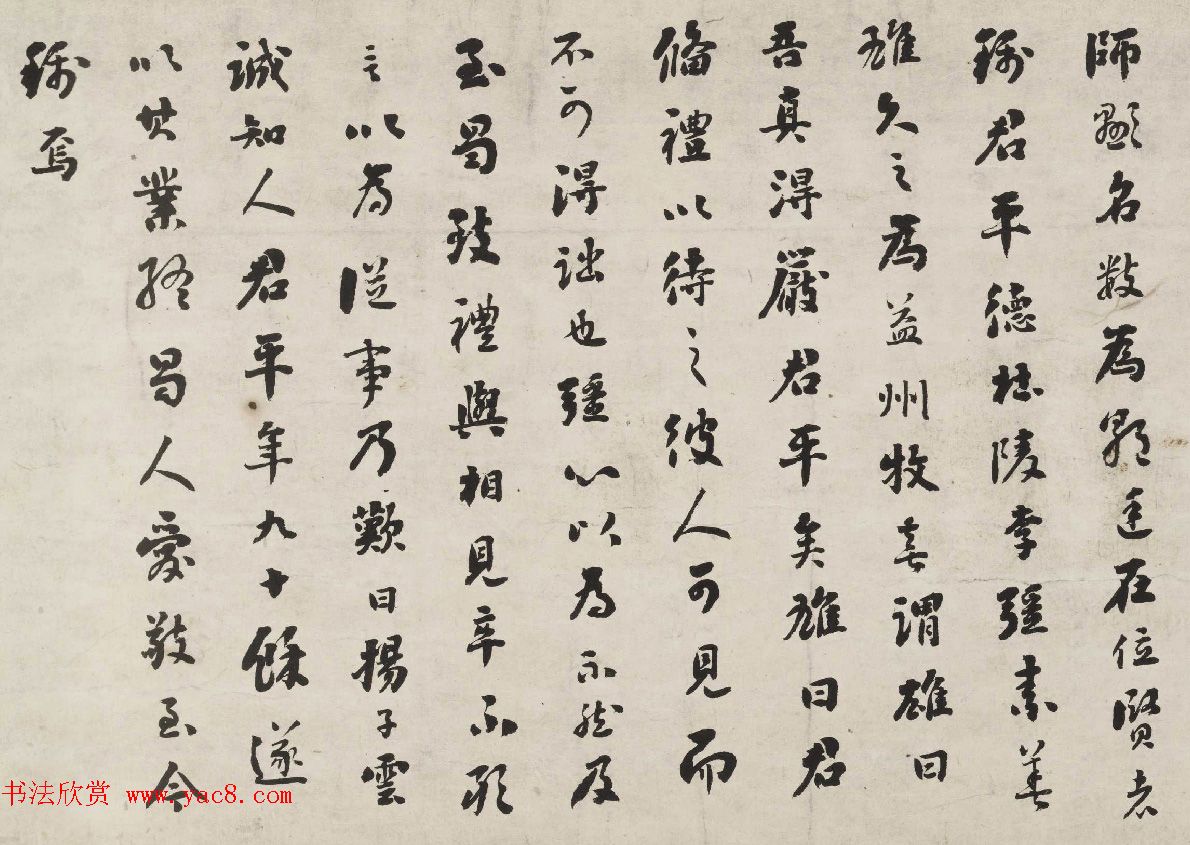 師顯名數為朝廷在位賢者
稱君平德杜陵李彊素善
雄久之為益州牧喜謂雄曰
吾真得嚴君平矣雄曰君
脩禮以待之彼人可見而
不可得詘也彊心以為不然及
至蜀致禮與相見卒不敢
言以為從事乃歎曰揚子雲
誠知人君平年九十餘遂
以其業終蜀人愛敬至今
稱焉
书法欣赏 www.yac8.com